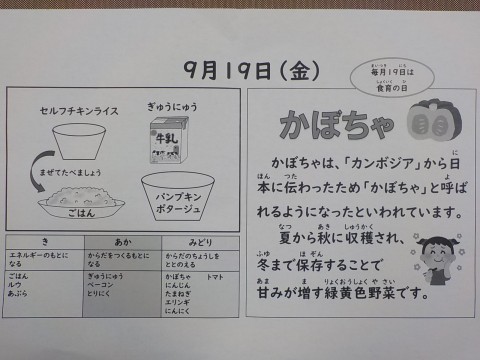 9月19日(金)
毎月19日は
食育の日
セルフチキンライス
ぎゅうにゅう
牛乳
まぜてたべましょう
ごはん
パンプキン
ポタージュ
き
あか
みどり
エネルギーのもとに
なる
からだをつくるもとに
なる
からだのちょうしを
ととのえる
ごはん
ルウ
あぶら
ぎゅうにゅう
ベーコン
とりにく
かぼちゃ トマト
にんじん
たまねぎ
エリンギ
にんにく
かぼちゃ
かぼちゃは、「カンボジア」から日
本に伝わったため「かぼちゃ」と呼ば
れるようになったといわれています。
夏から秋に収穫され、
冬まで保存することで
甘みが増す緑黄色野菜です。